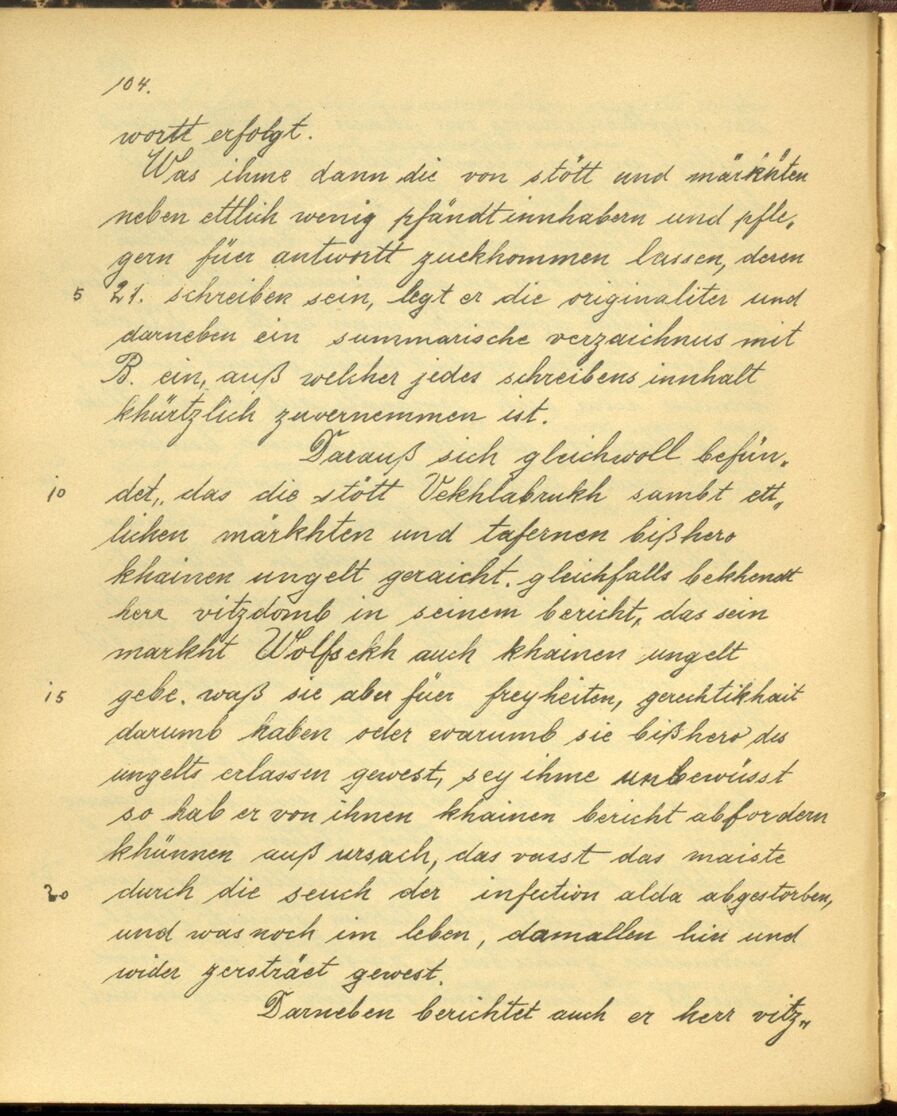 104.
wortt erfolgt.
Was ihme dann die von stött und märkhten
neben ettlich wenig pfändtinnhabern und pfle„
gern füer antwortt zuekhommen lassen, deren
5 21. schreiben sein, legt er die originaliter und
darneben ein summarische verzaichnus mit
B. ein, auß welcher jedes schreibens innhalt
khürtzlich zuvernemmen ist.
Darauß sich gleichwoll befün„
10 det, das die stött Vekhlabrukh sambt ett„
lichen märkhten und tafernen bißhero
khainen ungelt geraicht. gleichfalls bekhendt
herr vitzdomb in seinem bericht, das sein
markht Wolfsekh auch khainen ungelt
15 gebe. waß sie aber füer freyheiten, gerechtikhait
darumb haben oder warumb sie bißhero des
ungelts erlassen gewest, sey ihme unbewüsst
so hab er von ihnen khainen bericht abfordern
khünnen auß ursach, das vasst das maiste
20 durch die seuch der infection alda abgestorben,
und was noch im leben, damallen hin und
wider zersträet gewest.
Darneben berichtet auch er herr vitz„